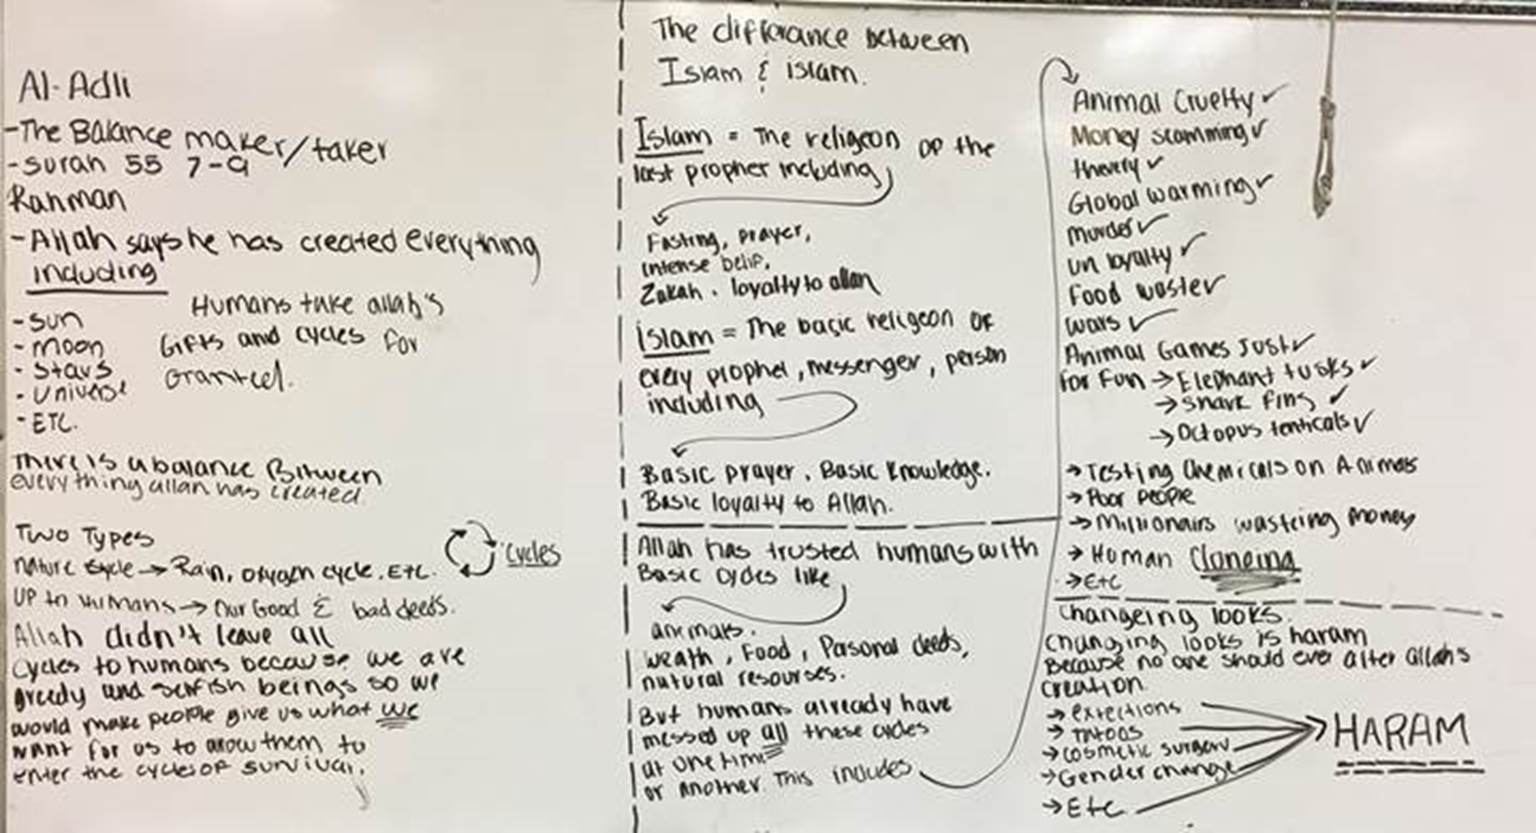 Al-Adli
-The Balance maker/taker
-surah 55 7-9
Rahman
-Allah says he has created everything
including
-sun
-moon
-stars
-universe
-ETC.
Humans take allah's
Gifts and cycles for
Granted.
There is a balance Between
everything allah has created
Two Types
nature cycle→ Rain, oxygen cycle, ETC.
cycles
UP to Humans→ Our Good & bad deeds.
Allah didn't leave all
cycles to humans because we are
greedy and selfish beings so we
would make people give us what we
want for us to allow them to
enter the cycles of survival.
The differance between
Islam & islam.
Islam = The religeon of the
last prophet including
Fasting, prayer,
intense belif,
Zakah. loyalty to allah
islam = The basic religeon OF
every prophet, messenger, person
including
Basic prayer. Basic knowledge.
Basic loyalty to Allah.
Allah has trusted humans with
Basic cycles like
animals.
weath, Food, Pasonal deeds,
natural resourses.
But humans already have
messed up all these cycles
at one time
or another This includes
Animal Cruelty ✓
Money scamming ✓
thevery ✓
Global warming ✓
murder ✓
un loyalty ✓
Food waste ✓
wars ✓
Animal Games Just ✓
for Fun → Elephant tusks ✓
→ shark fins ✓
→ Octopus tenticals ✓
→ Testing chemicals on Animals
→ Poor people
→ Millionairs wasteing money
→ Human Cloneing
→ Etc
Changeing looks.
changing looks is haram
Because no one should ever alter allahs
creation
→ extections
→ Tatoos
→ cosmetic surgery
→ Gender change
→ Etc
HARAM